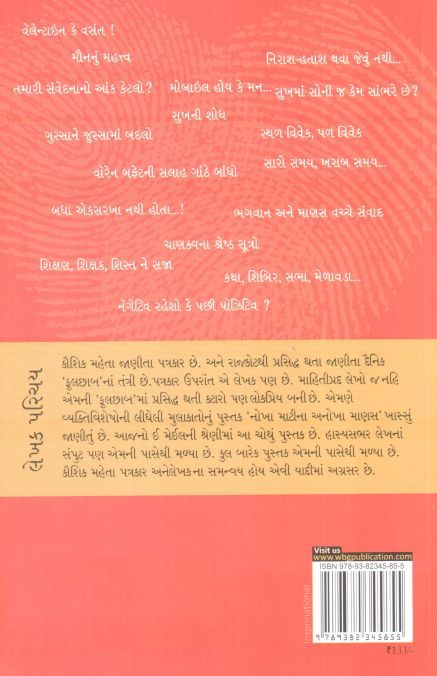 વૅલેન્ટાઇન કે વસંત !
મૌનનું મહત્ત્વ
નિરાશ-હતાશ થવા જેવું નથી...
તમારી સંવેદનાનો આંક કેટલો?
મોબાઇલ હોય કે મન...
સુખમાં સોની જ કેમ સાંભરે છે?
સુખની શોધ
ગુસ્સાને જુસ્સામાં બદલો
સ્થળ વિવેક, પળ વિવેક
વૉરેન બફેટની સલાહ ગાંઠે બાંધો
સારો સમય, ખરાબ સમય...
બધા એકસરખા નથી હોતા...!
ભગવાન અને માણસ વચ્ચે સંવાદ
ચાણક્યના શ્રેષ્ઠ સૂત્રો
શિક્ષણ, શિક્ષક, શિસ્ત ને સજા
કથા, શિબિર, સભા, મેળાવડા...
નૅગેટિવ રહેશો કે પછી પૉઝિટિવ ?
લેખક પરિચય
કૌશિક મહેતા જાણીતા પત્રકાર છે. અને રાજકોટથી પ્રસિદ્ધ થતા જાણીતા દૈનિક
'ફૂલછાબ'નાં તંત્રી છે.પત્રકાર ઉપરાંત એ લેખક પણ છે. માહિતીપ્રદ લેખો જ નહિ
એમની 'ફૂલછાબ'માં પ્રસિદ્ધ થતી કટારો પણ લોકપ્રિય બની છે. એમણે
વ્યક્તિવિશેષોની લીધેલી મુલાકાતોનું પુસ્તક 'નોખા માટીના અનોખા માણસ' ખાસ્સું
જાણીતું છે. આજનો ઈ મેઈલની શ્રેણીમાં આ ચોથું પુસ્તક છે. હાસ્યસભર લેખનાં
સંપુટ પણ એમની પાસેથી મળ્યા છે. કુલ બારેક પુસ્તક એમની પાસેથી મળ્યા છે.
કૌશિક મહેતા પત્રકાર અનેલેખકના સમન્વય હોય એવી યાદીમાં અગ્રસર છે.
Visit us
www.wbgpublication.com
ISBN 978-93-82345-85-5
Inspirational
9 789382 345855
₹133/-